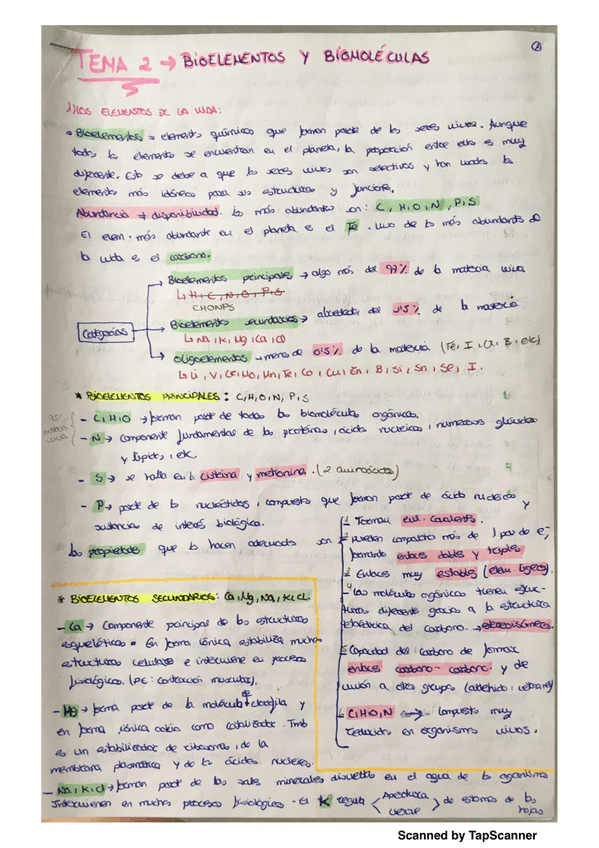 TEMA 2 → BIOELEMENTOS Y BIOMOLÉCULAS
1) LOS ELEMENTOS DE LA VIDA:
* Bioelementos = elementos químicos que forman parte de los seres vivos. Aunque
todos los elementos se encuentran en el planeta, la proporción entre ellos es muy
diferente. Esto se debe a que los seres vivos son selectivos y han usado los
elementos más idóneos para sus estructuras y funciones.
Abundancia ≠ disponibilidad. Los más abundantes son: C, H, O, N, P, S
El elem. más abundante en el planeta es el Fe. Uno de los más abundantes de
la vida es el carbono.
Bioelementos principales → algo más del 97% de la materia viva
↳ H, C, N, O, P, S
CHONPS
Categorías
Bioelementos secundarios → alrededor del 2'5% de la materia
↳ Na, K, Mg, Ca, Cl
Oligoelementos → menos de 0'5% de la materia (Fe, I, Cu, B, etc)
↳ Li, V, Cr, Mo, Mn, Fe, Co, Cu, Zn, B, Si, Sn, Se, I.
* BIOELEMENTOS PRINCIPALES: C, H, O, N, P, S
materia viva
- C, H, O → forman parte de todas las biomoléculas orgánicas.
- N → componente fundamental de las proteínas, ácidos nucleicos, numerosos glúcidos
y lípidos, etc.
- S → se halla en la cisteína y metionina. (2 aminoácidos)
- P → parte de los nucleótidos, compuestos que forman parte de ácidos nucleicos y
sustancias de interés biológico.
Las propiedades que los hacen adecuados son
1 Forman enl. covalentes.
2 Pueden compartir más de 1 par de e⁻,
formando enlaces dobles y triples
3 Enlaces muy estables (elem. ligeros).
4 - Las moléculas orgánicas tienen estruc-
turas diferentes gracias a la estructura
tetraédrica del carbono. → estereoisómeros.
5 Capacidad del carbono de formar
enlaces carbono-carbono. y de
unión a otros grupos (aldehído, cetona)
6 C, H, O, N → Compuestos muy
reducidos en organismos vivos.
* BIOELEMENTOS SECUNDARIOS: Ca, Mg, Na, K, Cl.
- Ca → Componente principal de las estructuras
esqueléticas. En forma iónica, estabiliza muchas
estructuras celulares e interviene en procesos
fisiológicos. (pe: contracción muscular).
- Mg → forma parte de la molécula de clorofila y
en forma iónica actúa como catalizador. Tmb
es un estabilizador de ribosomas, de la
membrana plasmática y de los ácidos nucleicos.
- Na, K, Cl → forman parte de las sales minerales disueltas en el agua de los organismos
Intervienen en muchos procesos fisiológicos. El K regula < Apertura
cierre > de estomas de las
hojas
Scanned by TapScanner